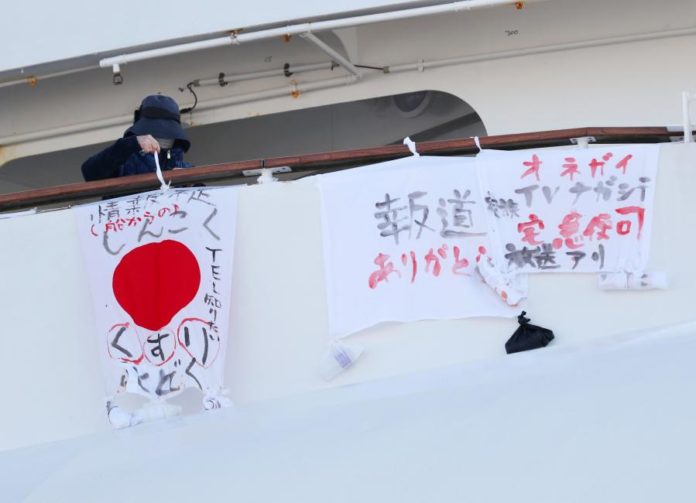 情報
(船からの)
しんこく
TEL知りたい
くすり
報道
ありがと
オネガイ
TVナガシテ
宅急便可
放送アリ